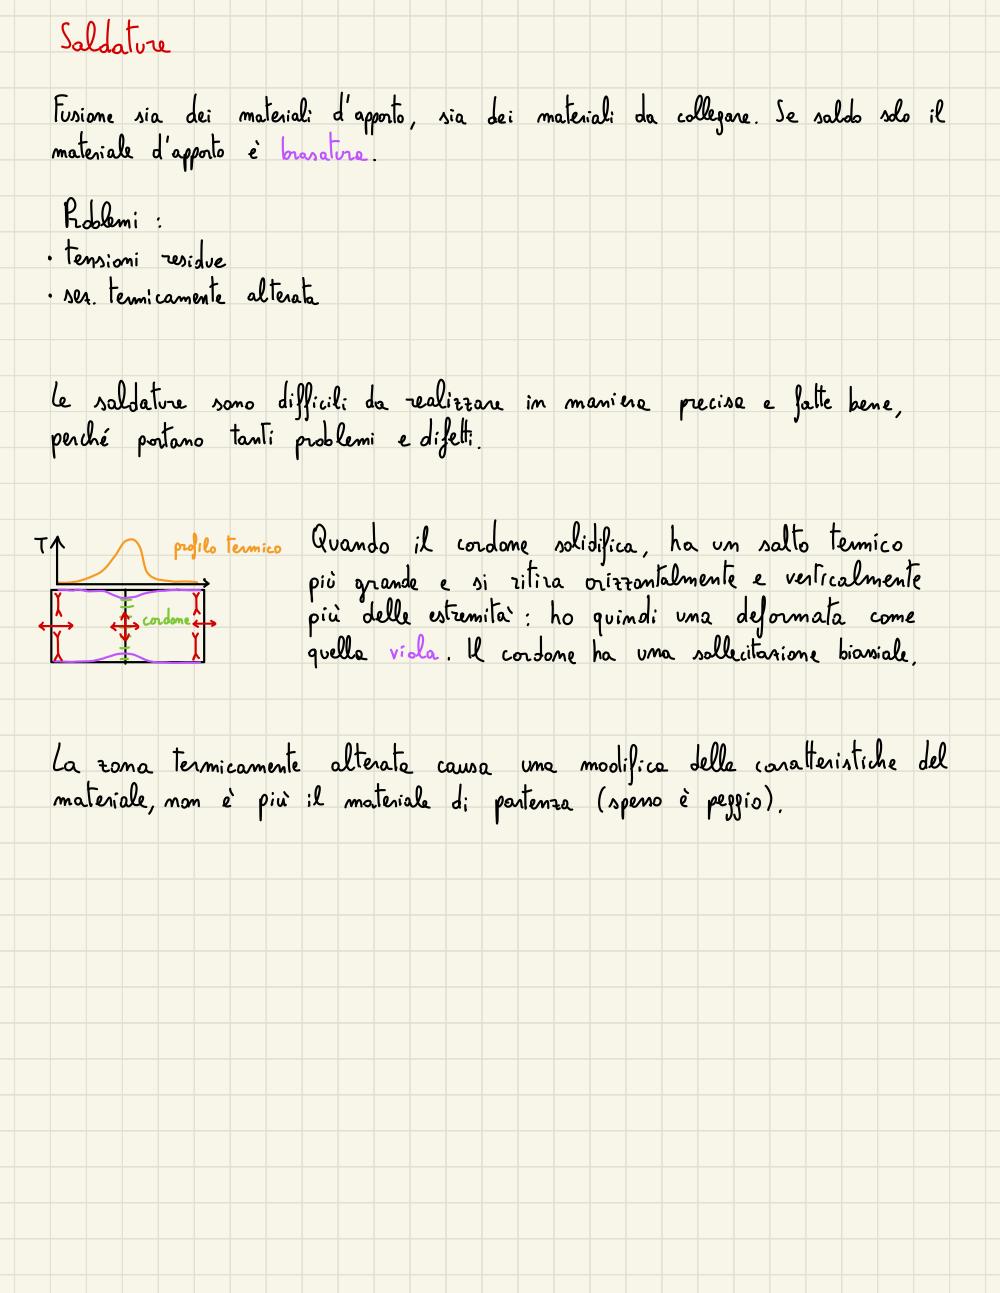 Saldature
Fusione sia dei materiali d'apporto, sia dei materiali da collegare. Se saldo solo il
materiale d'apporto è brasatura.
Problemi :
• tensioni residue
• sez. termicamente alterata
Le saldature sono difficili da realizzare in maniera precisa e fatte bene,
perché portano tanti problemi e difetti.
T
profilo termico
cordone
Quando il cordone solidifica, ha un salto termico
più grande e si ritira orizzontalmente e verticalmente
più delle estremità : ho quindi una deformata come
quella viola. Il cordone ha una sollecitazione biassiale.
La zona termicamente alterata causa una modifica delle caratteristiche del
materiale, non è più il materiale di partenza (spesso è peggio).